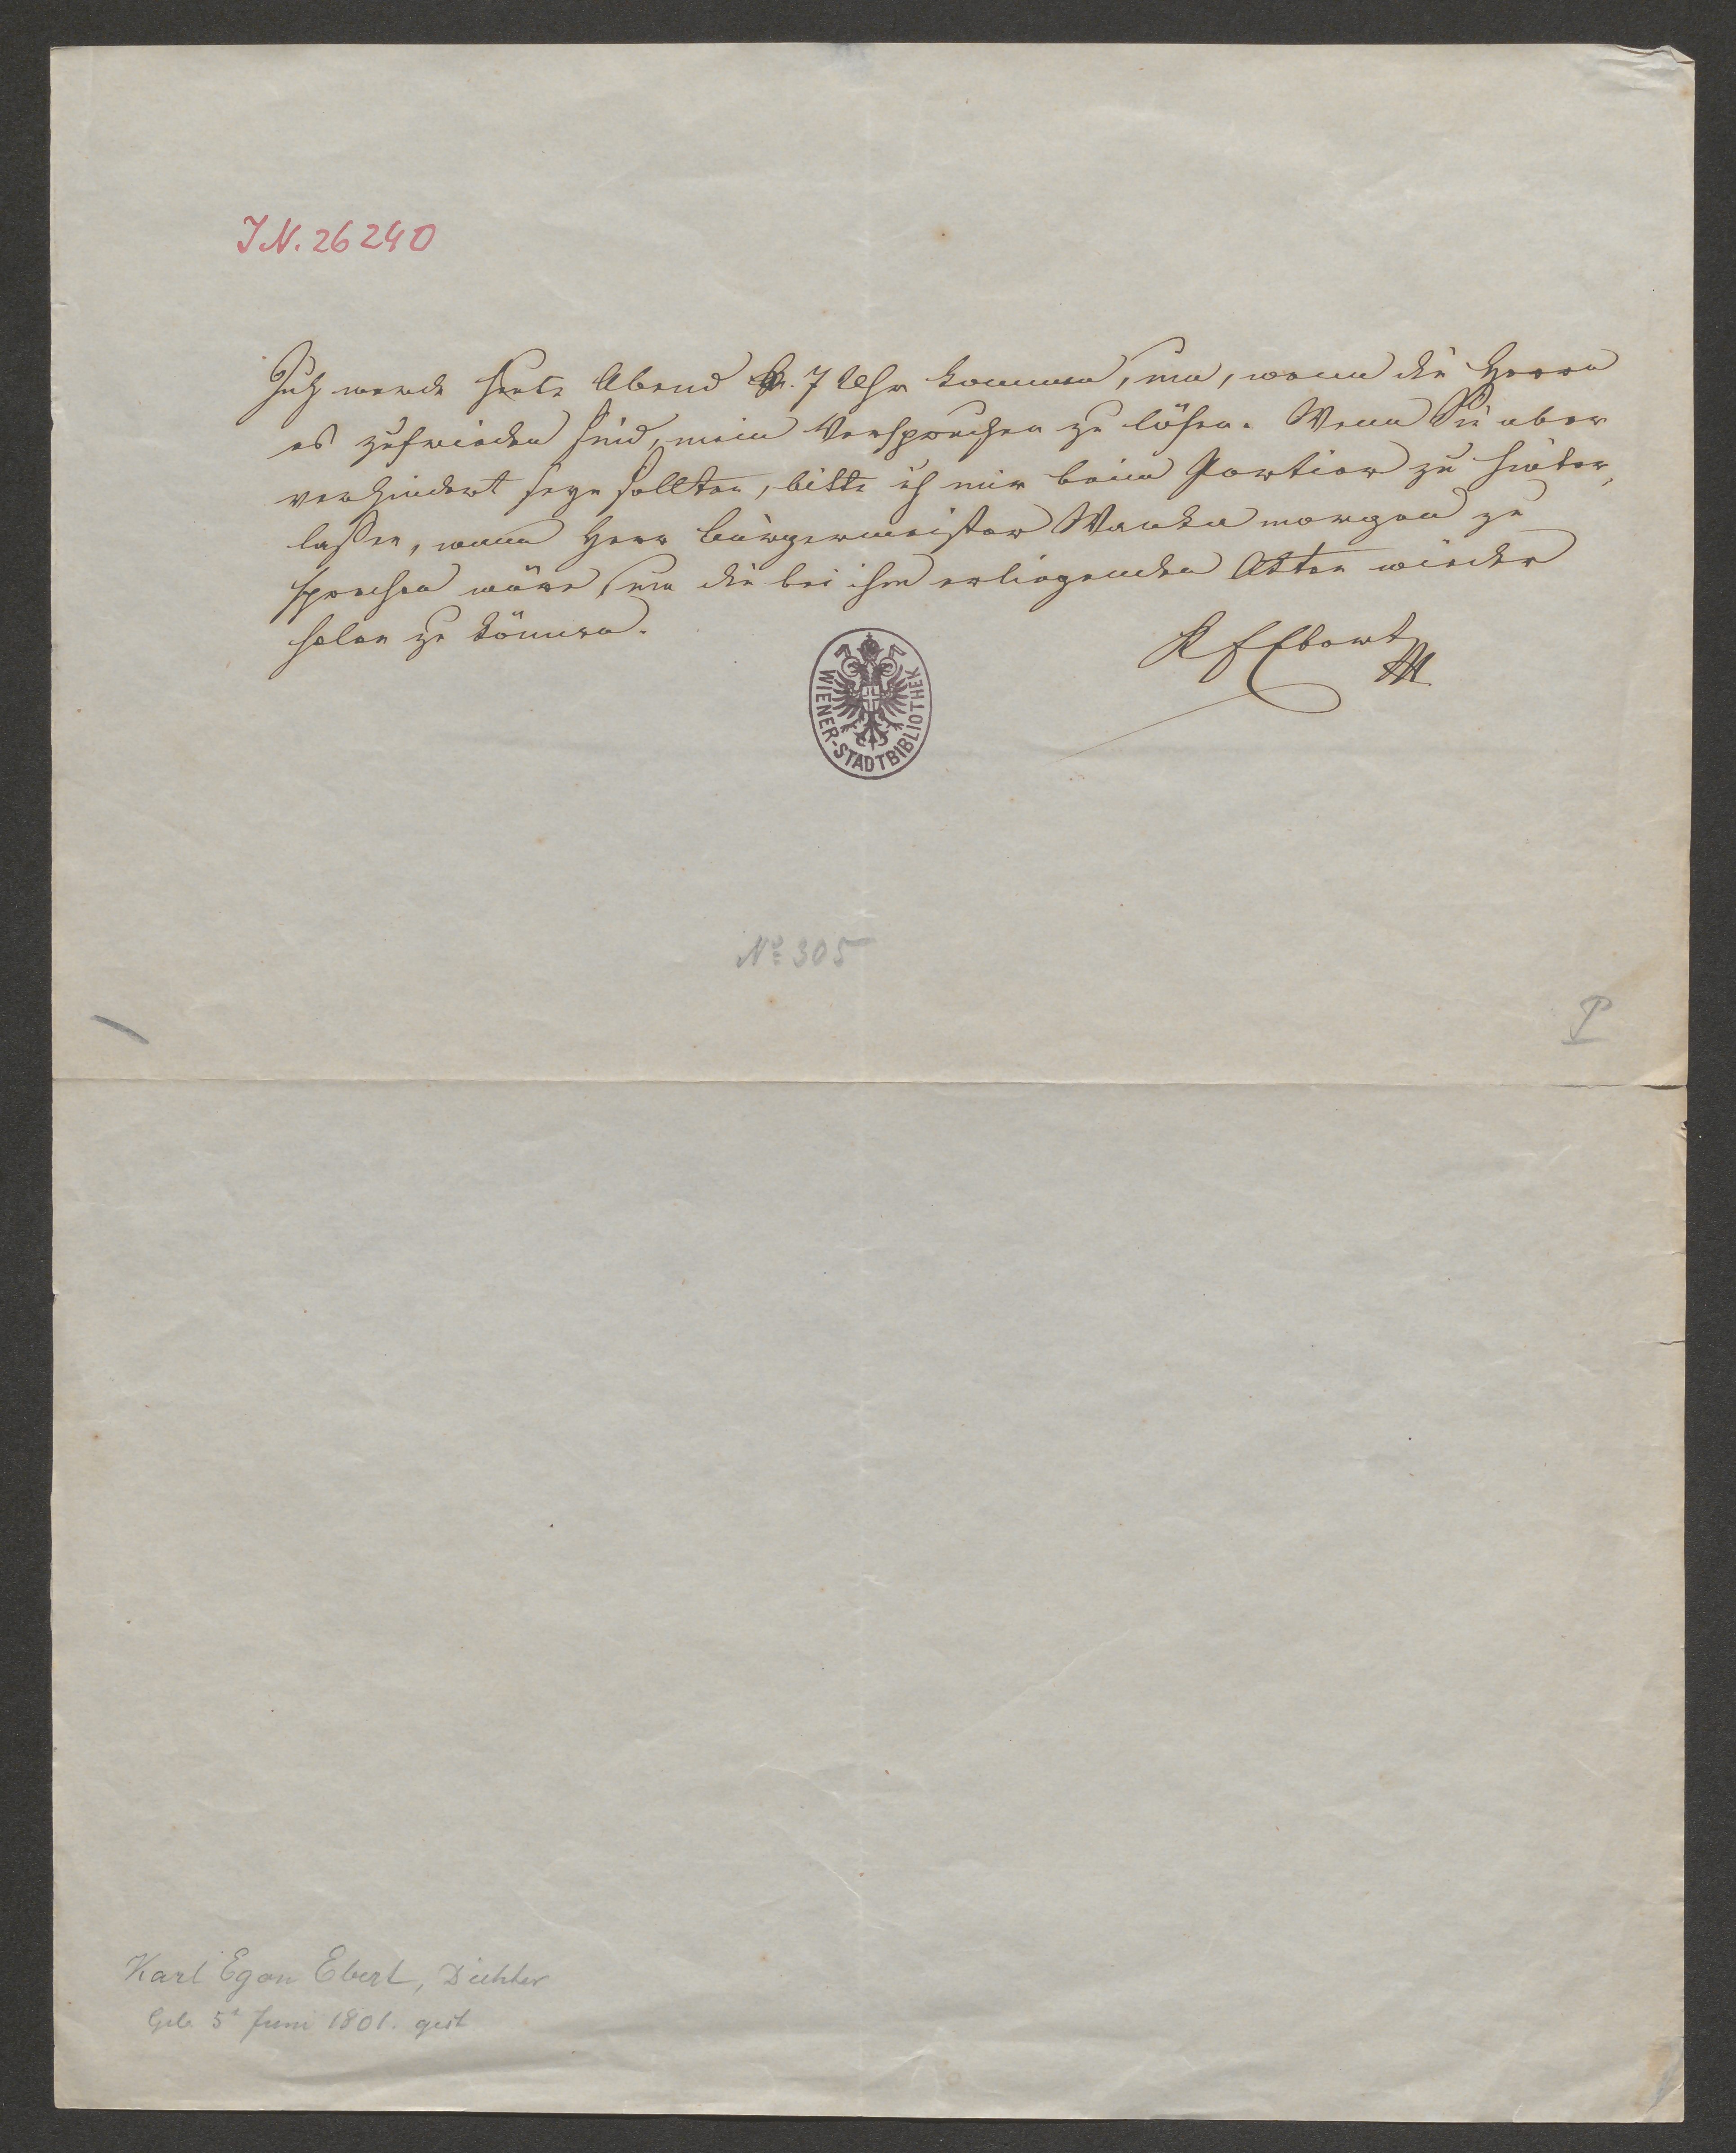 J.N. 26240
Ich werde heute Abend 7 Uhr kommen, um, wenn die Herrn
es zufrieden sind, mein Versprechen zu lösen. Wenn Sie aber
verhindert seyn sollten, bitte ich mir beim Portier zu hinter,
lassen, wann Herr Bürgermeister Wanka morgen zu
sprechen wäre, um die bei ihm erliegenden Akten wieder
holen zu können.
K E Ebert
WIENER-STADTBIBLIOTHEK
No 305
P
Karl Egon Ebert, Dichter
Geb. 5t Juni 1801. gest